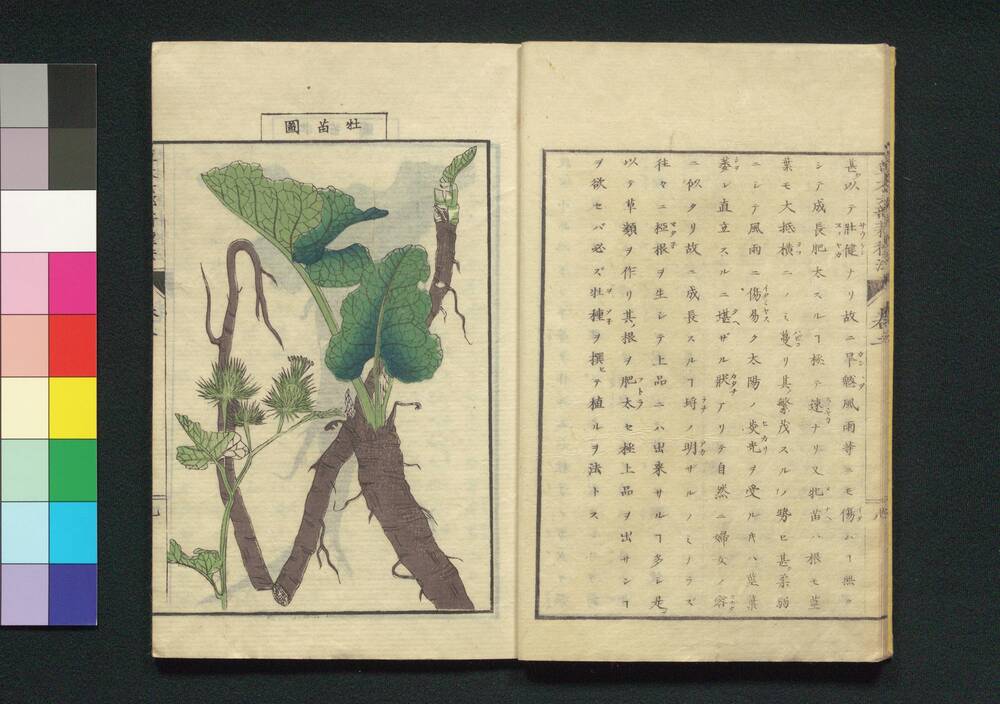 甚以テ壯健ナリ故ニ旱魃風雨等ニモ傷ハヿ無ク
シテ成長肥太スルヿ極テ速ナリ又牝苗ハ根モ莖
葉モ大抵横ニノミ蔓リ其繁茂スルノ勢ヒ甚柔弱
ニシテ風雨ニ傷易ク太陽ノ炎光ヲ受ル片ハ莖葉
萎レ直立スルニ堪ザル狀アリテ自然ニ婦女ノ容
ニ似タリ故ニ成長スルヿ埒ノ明ザルノミナラズ
往々ニ極根ヲ生シテ上品ニハ出來サルヿ多シ是
以テ草類ヲ作リ其根ヲ肥太セ極上品ヲ出サンヿ
ヲ欲セバ必ズ壯種ヲ撰テ植ルヲ法トス
牡苗圖